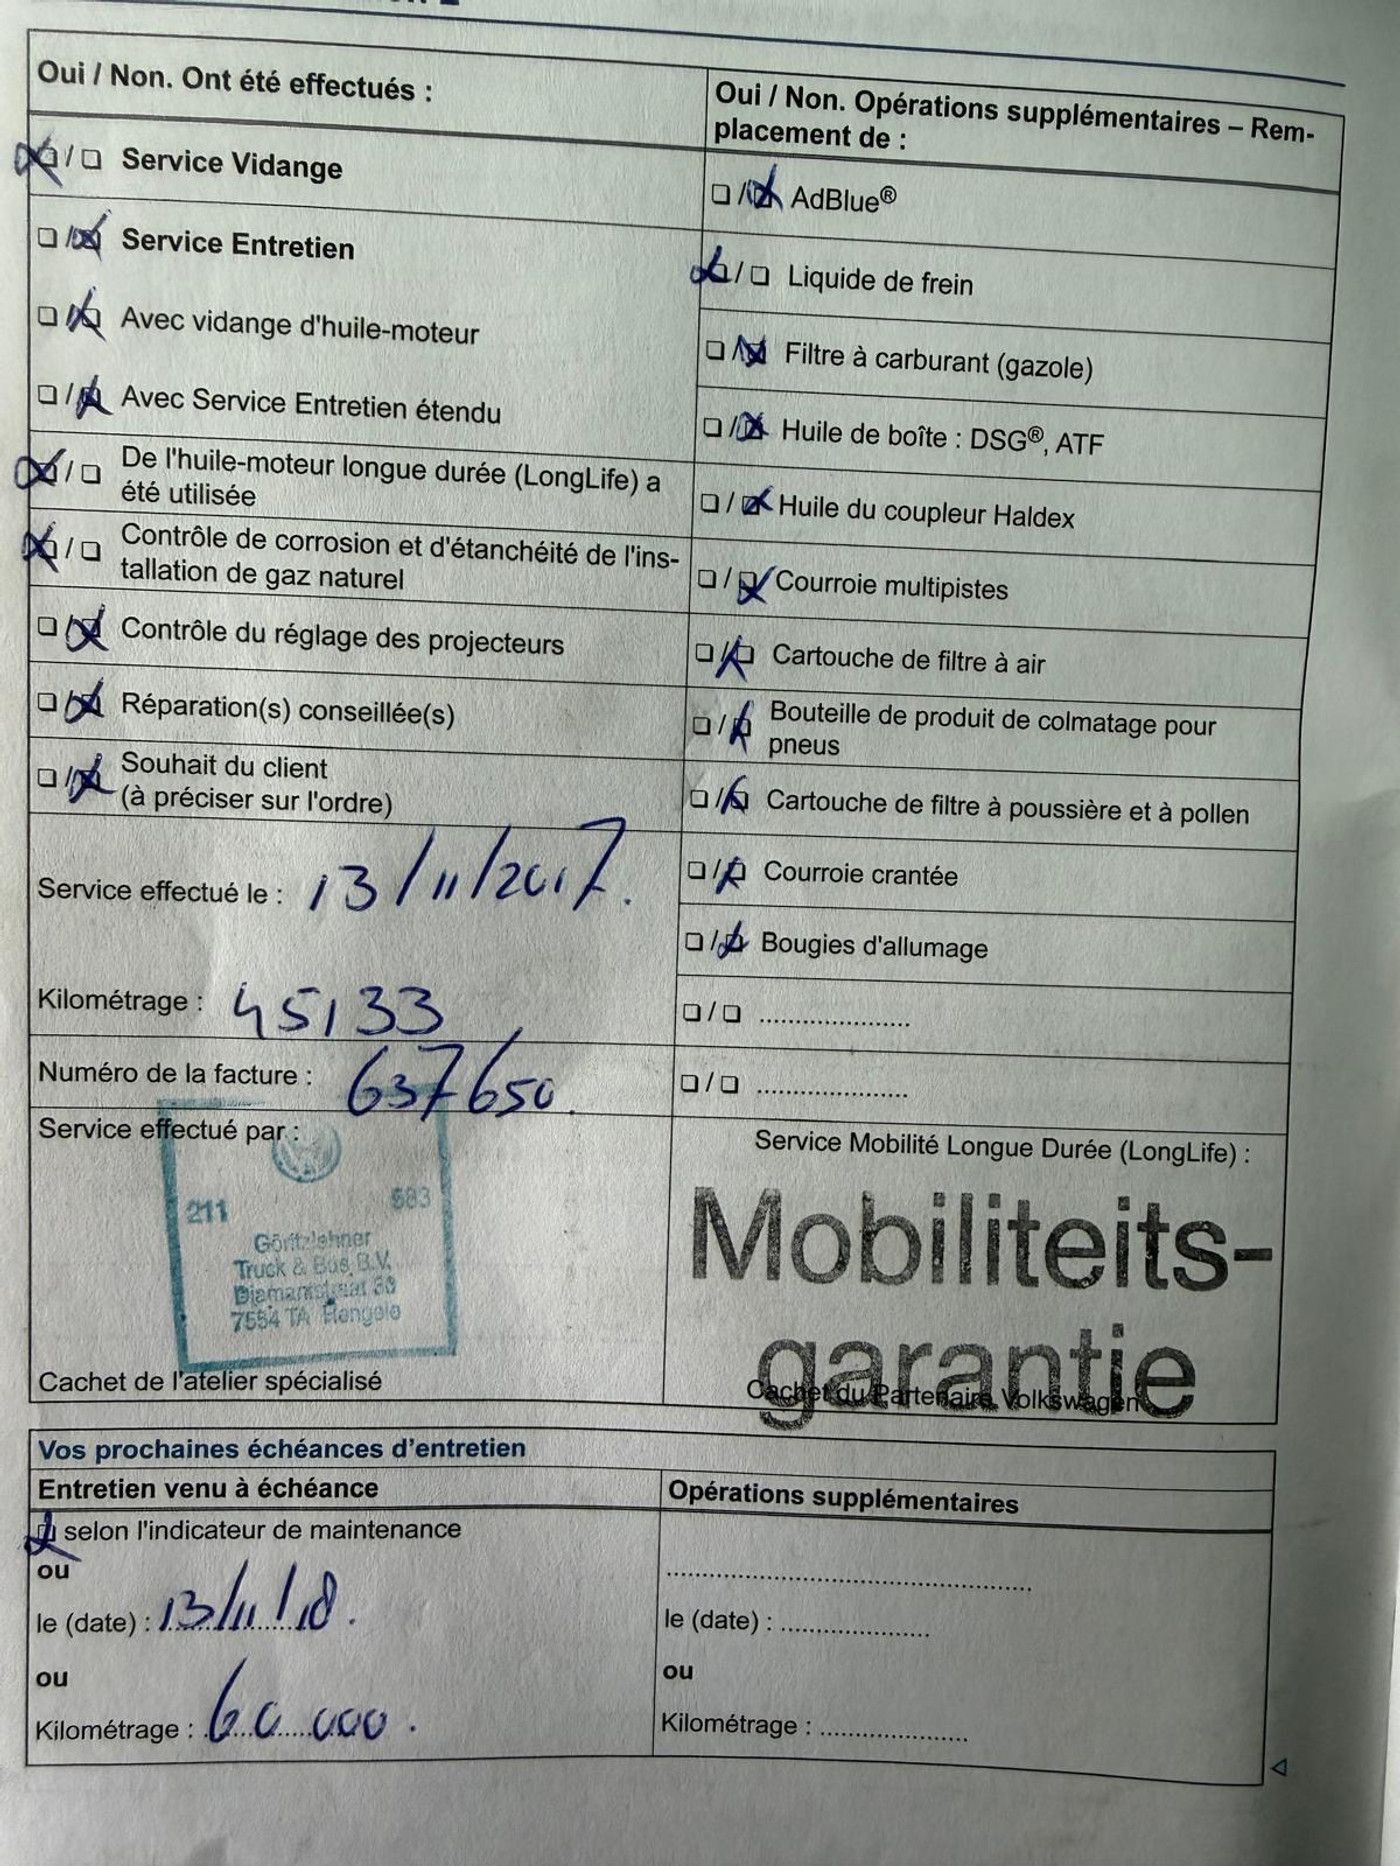 Oui / Non. Ont été effectués :
☒/☐ Service Vidange
☐/☒ Service Entretien
☐/☒ Avec vidange d'huile-moteur
☐/☒ Avec Service Entretien étendu
☒/☐ De l'huile-moteur longue durée (LongLife) a
été utilisée
☒/☐ Contrôle de corrosion et d'étanchéité de l'ins-
tallation de gaz naturel
☐/☒ Contrôle du réglage des projecteurs
☐/☒ Réparation(s) conseillée(s)
☐/☒ Souhait du client
(à préciser sur l'ordre)
Service effectué le : 13/11/2017.
Kilométrage : 45133
Numéro de la facture : 637650.
Service effectué par :
211 583
Göritzlehner
Truck & Bus B.V.
Diamantstraat 38
7554 TA Hengelo
Cachet de l'atelier spécialisé
Oui / Non. Opérations supplémentaires – Rem-
placement de :
☐/☒ AdBlue®
☒/☐ Liquide de frein
☐/☒ Filtre à carburant (gazole)
☐/☒ Huile de boîte : DSG®, ATF
☐/☒ Huile du coupleur Haldex
☐/☒ Courroie multipistes
☐/☒ Cartouche de filtre à air
☐/☒ Bouteille de produit de colmatage pour
pneus
☐/☒ Cartouche de filtre à poussière et à pollen
☐/☒ Courroie crantée
☐/☒ Bougies d'allumage
☐/☐ .....................
☐/☐ .....................
Service Mobilité Longue Durée (LongLife) :
Mobiliteits-
garantie
Cachet du Partenaire Volkswagen
Vos prochaines échéances d'entretien
Entretien venu à échéance
☒ selon l'indicateur de maintenance
ou
le (date) : 13/11/18.
ou
Kilométrage : 60.000.
Opérations supplémentaires
..................................................
le (date) : .....................
ou
Kilométrage : .....................